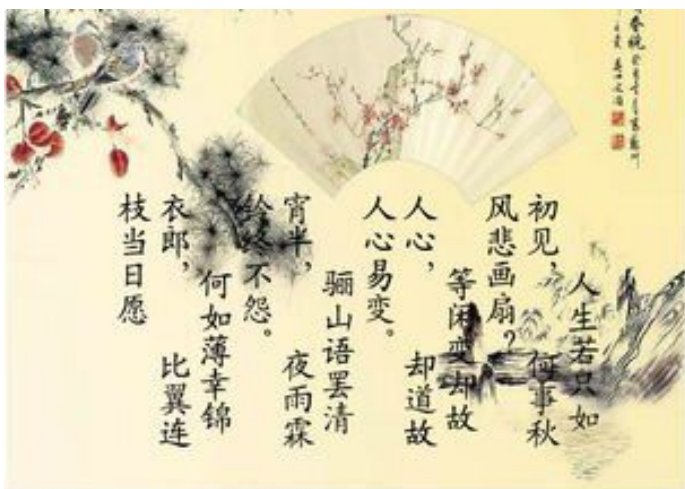 人生若只如
初见， 何事秋
风悲画扇？
等闲变却故
人心， 却道故
人心易变。
骊山语罢清
宵半， 夜雨霖
铃终不怨。
何如薄幸锦
衣郎， 比翼连
枝当日愿